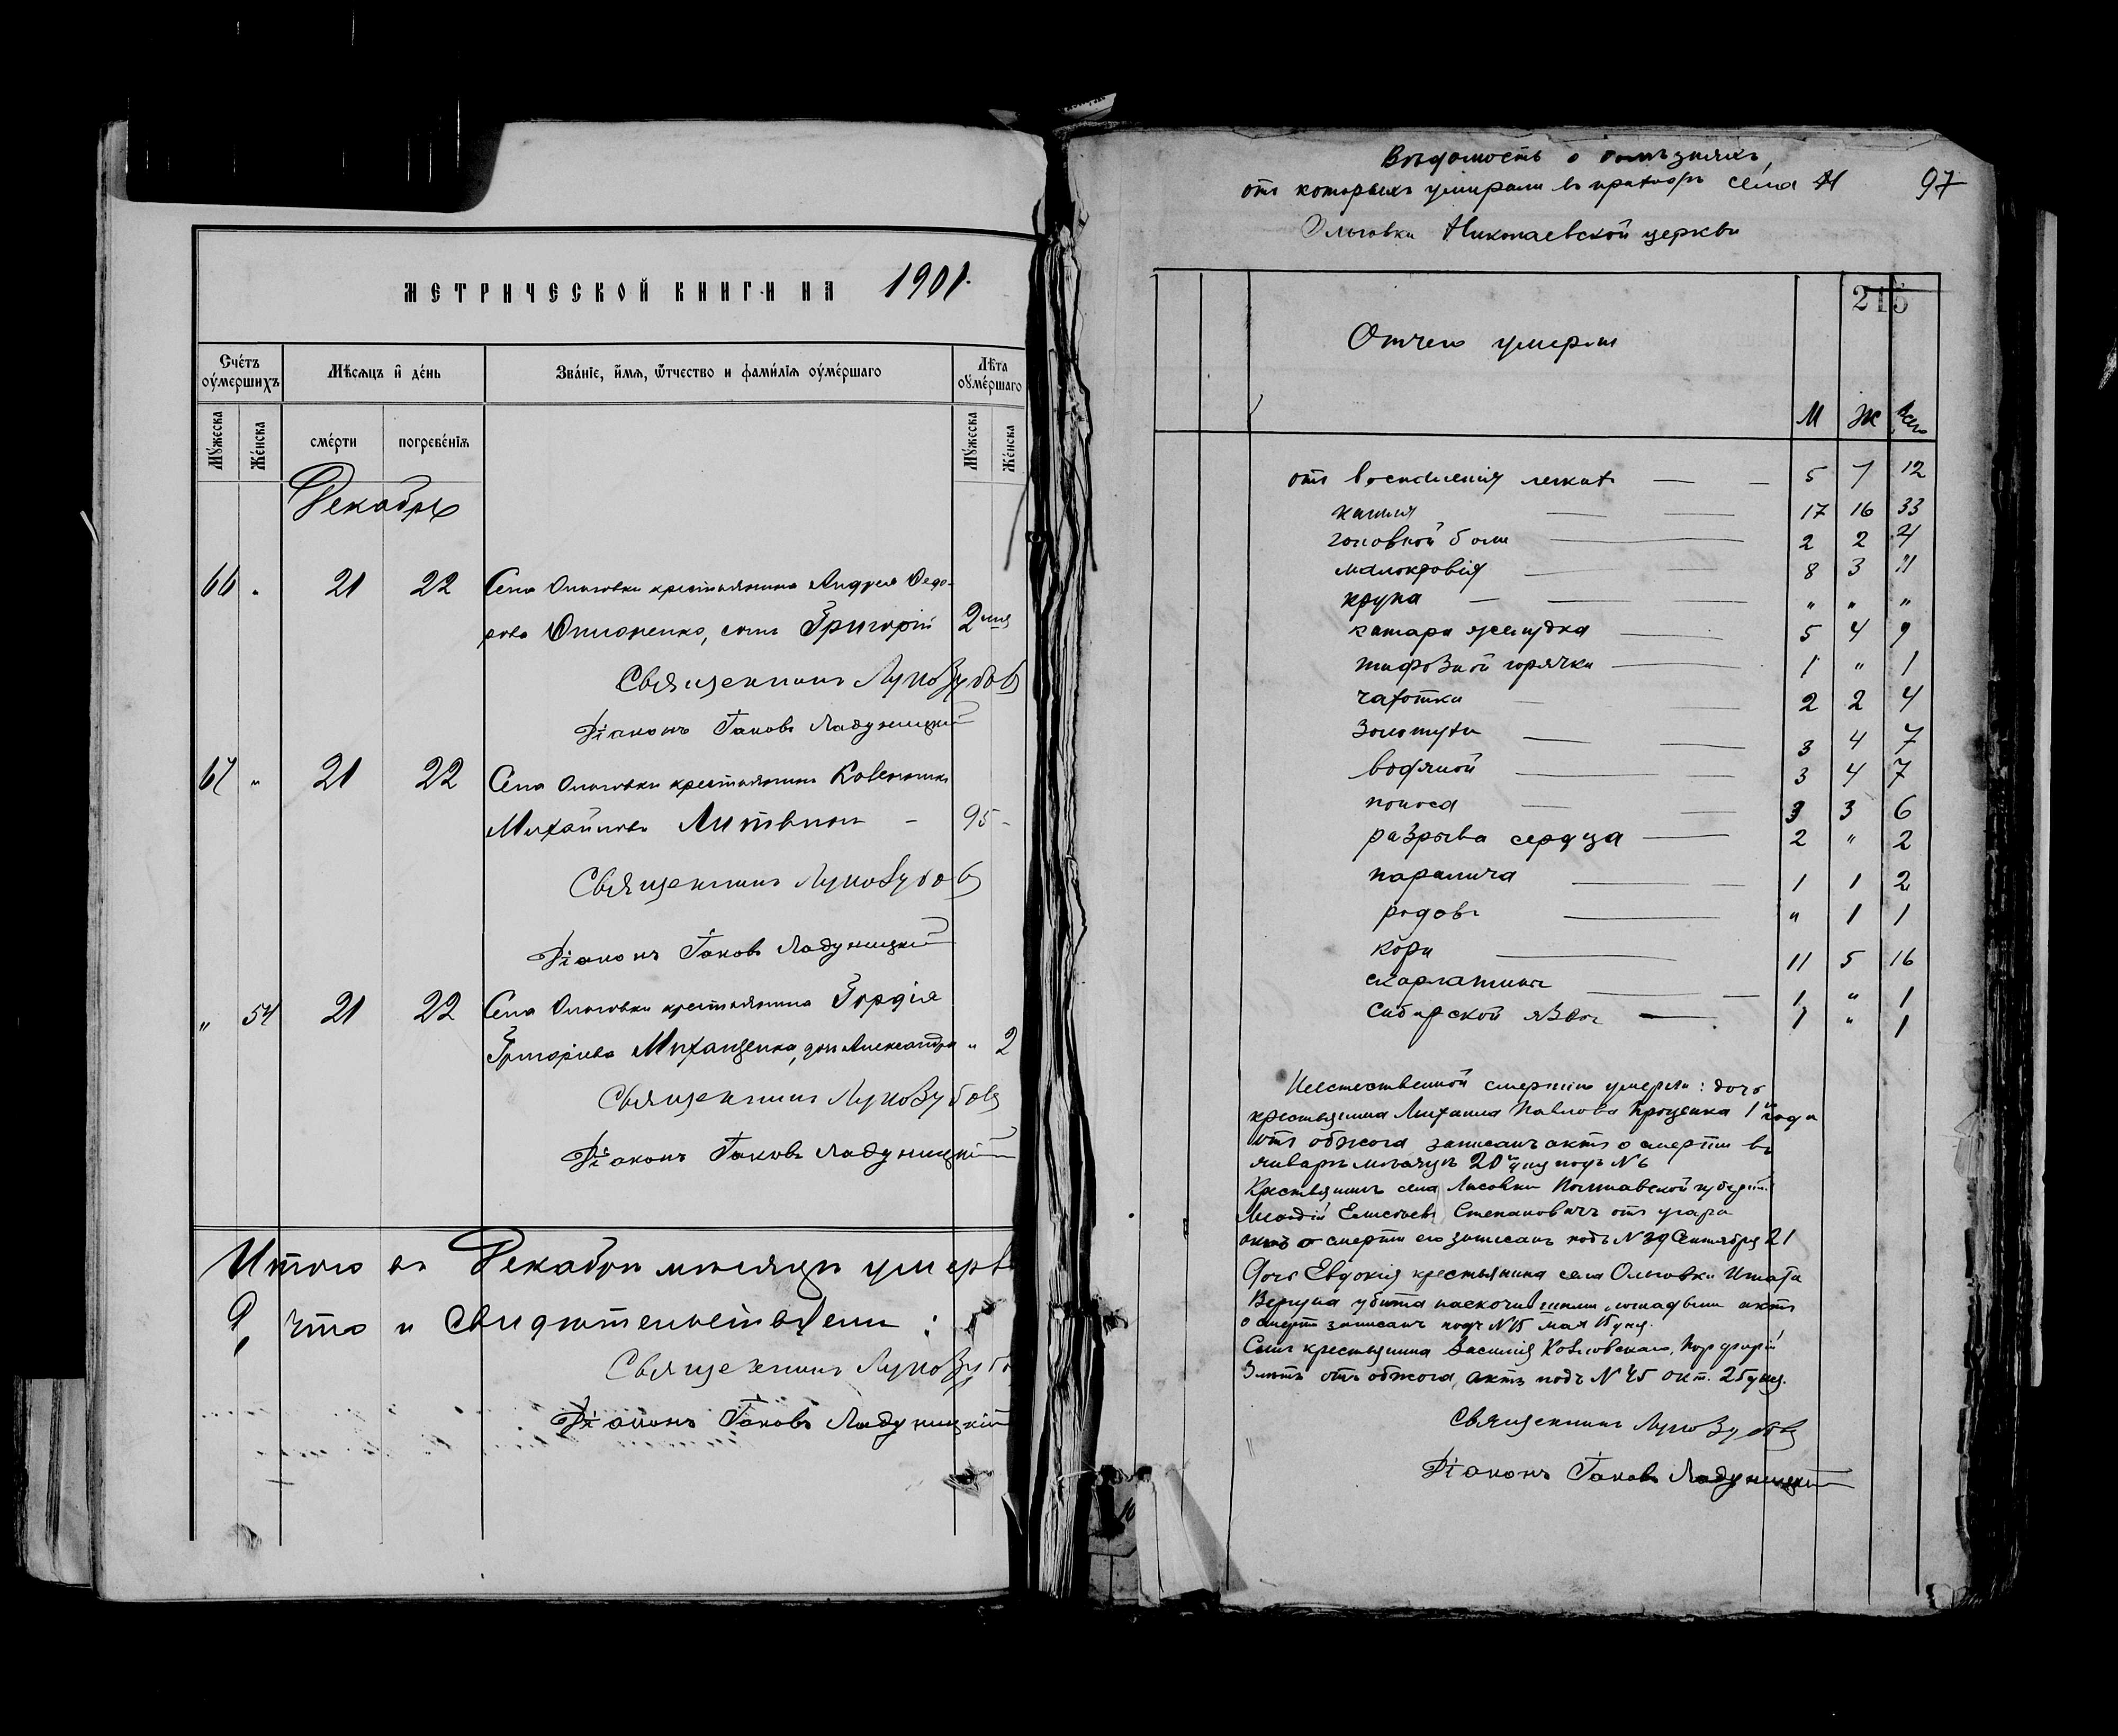 МЕТРИЧЕСКОЙ КНИГИ НА 1901.
Сче́тъ оу҆ме́ршихъ
Мѣ́сѧцъ и҆ де́нь
Зва́нїе, и҆́мѧ, ѻ҆́тчество и фами́лїѧ оу҆ме́ршаго
Лѣ́та оу҆ме́ршаго
Мꙋ́жеска
Же́нска
сме́рти
погребе́нїѧ
Мꙋ́жеска
Же́нска
Декабрь
66 „ 21 22 Села Ольговки крестьянина Андрея Ѳедо-
рова Опилоненко, сынъ Григорій 2 дня
Священникъ Лукозубовъ
Діаконъ Іаковъ Ладуницкій
67 „ 21 22 Села Ольговки крестьянинъ
Михайловъ Литвинъ - 95 -
Священникъ Лукозубовъ
Діаконъ Іаковъ Ладуницкій
„ 54 21 22 Села Ольговки крестьянина Гордія
Григоріева Михайленка, дочь Александра „ 2
Священникъ Лукозубовъ
Діаконъ Іаковъ Ладуницкій
Итого въ Декабрѣ мѣсяцѣ умерв
9, что и свидѣтельствуемъ:
Священникъ Лукозубо
Діаконъ Іаковъ Ладуницкій
Вѣдомость о болѣзняхъ,
отъ которыхъ умирали въ приходѣ села Н
97
Ольговки Николаевской церкви
215
Отчего умерли
М Ж Всего
отъ воспаленія легкихъ — — 5 7 12
кашля — — 17 16 33
головной боли — 2 2 4
малокровія — — 8 3 11
крупа — — — „ „ „
катара желудка — 5 4 9
тифозной горячки — 1 „ 1
чахотки — — 2 2 4
Золотухи — — 3 4 7
водяной — — 3 4 7
поноса — — 3 3 6
разрыва сердца — 2 „ 2
паралича — — 1 1 2
родовъ — „ 1 1
кори — 11 5 16
скарлатины — — 1 „ 1
Сибирской язвы — 1 „ 1
Неестественной смертію умерли: дочь
крестьянина Михаила Павлова Проценка 1 года
отъ обжога записанъ актъ о смерти въ
январѣ мѣсяцѣ 20 дня подъ №6
Крестьянинъ села Лисовки Полтавской губерніи
Елисѣевъ Степановичъ отъ угара
актъ о смерти его записанъ подъ №39 Сентября 21
Дочь Евдокія крестьянина села Ольговки Игната
Вергуна убита наскочившими лошадьми актъ
о смерти записанъ подъ №15 мая 15 дня.
Сынъ крестьянина Василія Козловскаго, Порфирій
3 лѣтъ отъ обжога, актъ подъ №45 окт. 25 дня.
Священникъ Лукозубовъ
Діаконъ Іаковъ Ладуницкій